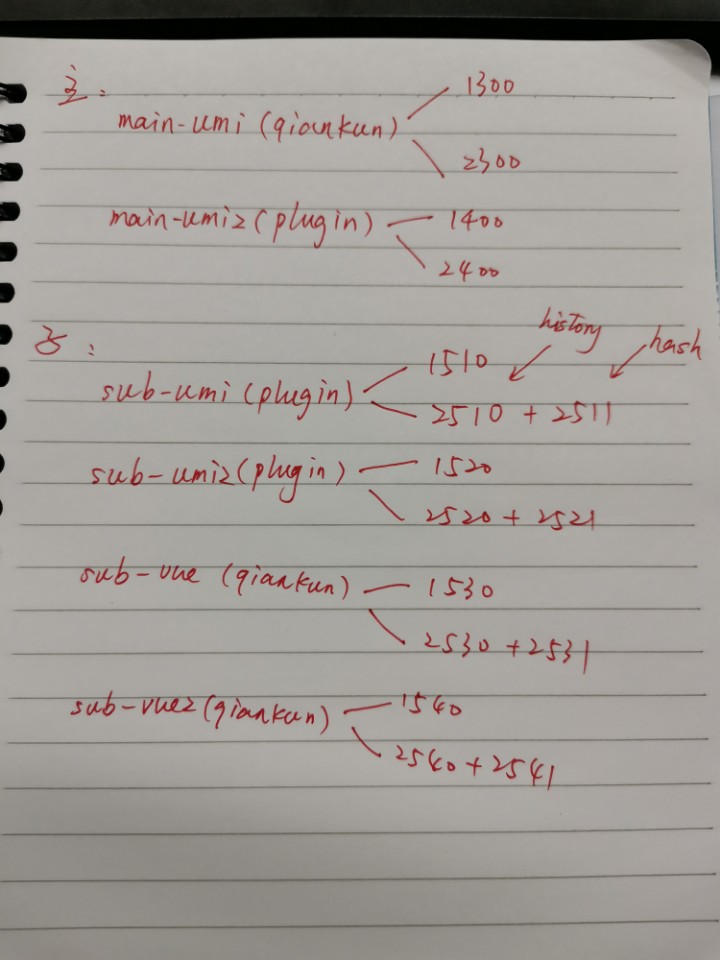 主：
main-umi (qiankun) 1300
2300
main-umi2 (plugin) 1400
2400
子：
history
hash
sub-umi (plugin) 1510
2510 + 2511
sub-umi2 (plugin) 1520
2520 + 2521
sub-vue (qiankun) 1530
2530 + 2531
sub-vue2 (qiankun) 1540
2540 + 2541